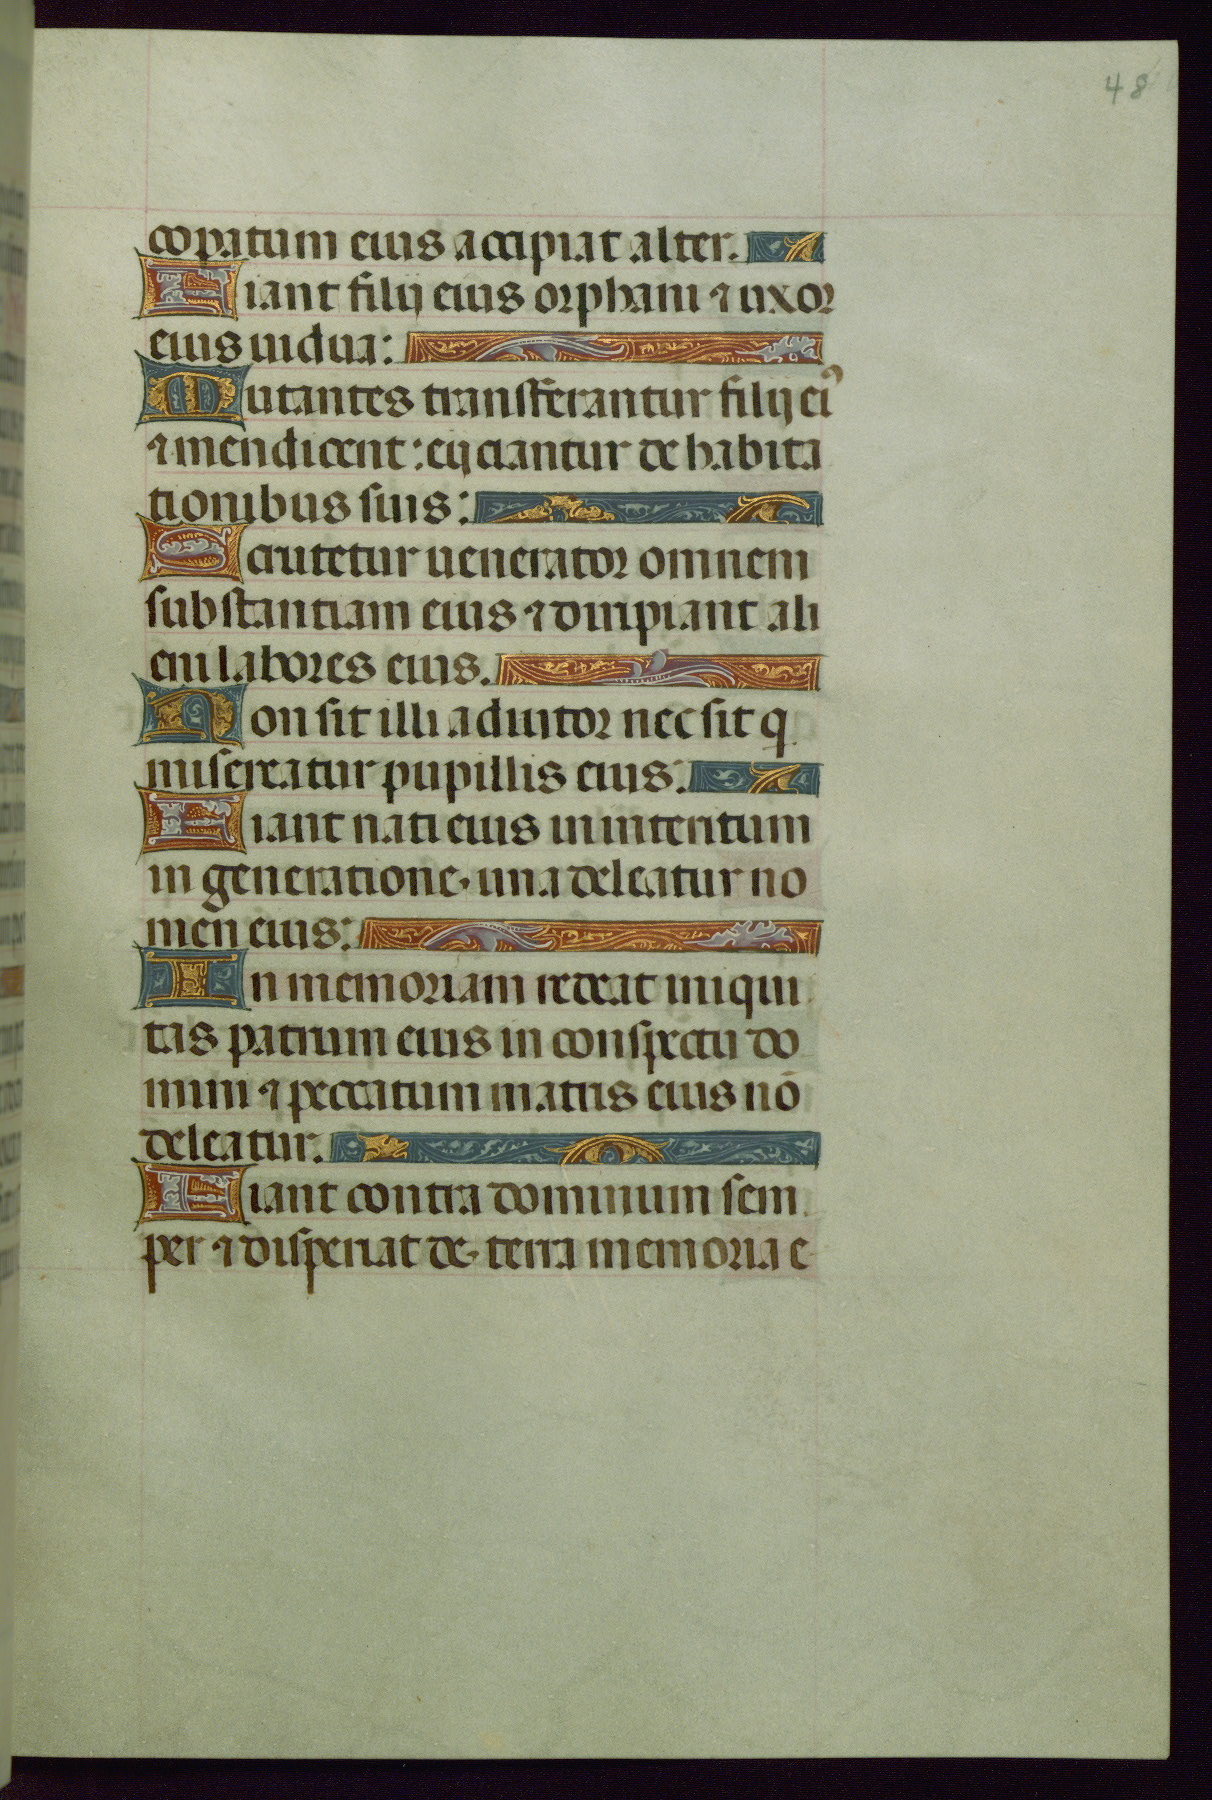 48
copatum eius accipiat alter.
Fiant filij eius orphani ⁊ uxor
eius uidua:
Nutantes transferantur filij eiꝰ
⁊ mendicent: eijciantur de habita
tionibus suis:
Scrutetur uenerator omnem
substantiam eius ⁊ diripiant ali
eni labores eius.
Non sit illi adiutor nec sit q
misereatur pupillis eius:
Fiant nati eius in interitum
in generatione una deleatur no
men eius:
In memoriam redeat iniqui
tas patrum eius in conspectu do
mini ⁊ peccatum matris eius nō
deleatur.
Fiant contra dominum sem
per ⁊ dispereat de terra memoria e